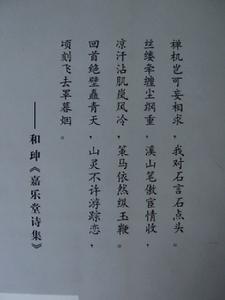 禅机岂可妄相求，我对石言石点头。
丝缕牵缠尘网重，溪山笔傲宦情收，
凉汗沾肌岚风冷，策马依然纵玉鞭。
回首绝壁矗青天，山灵不许游踪恋，
顷刻飞去罩暮烟。
——和珅《嘉乐堂诗集》